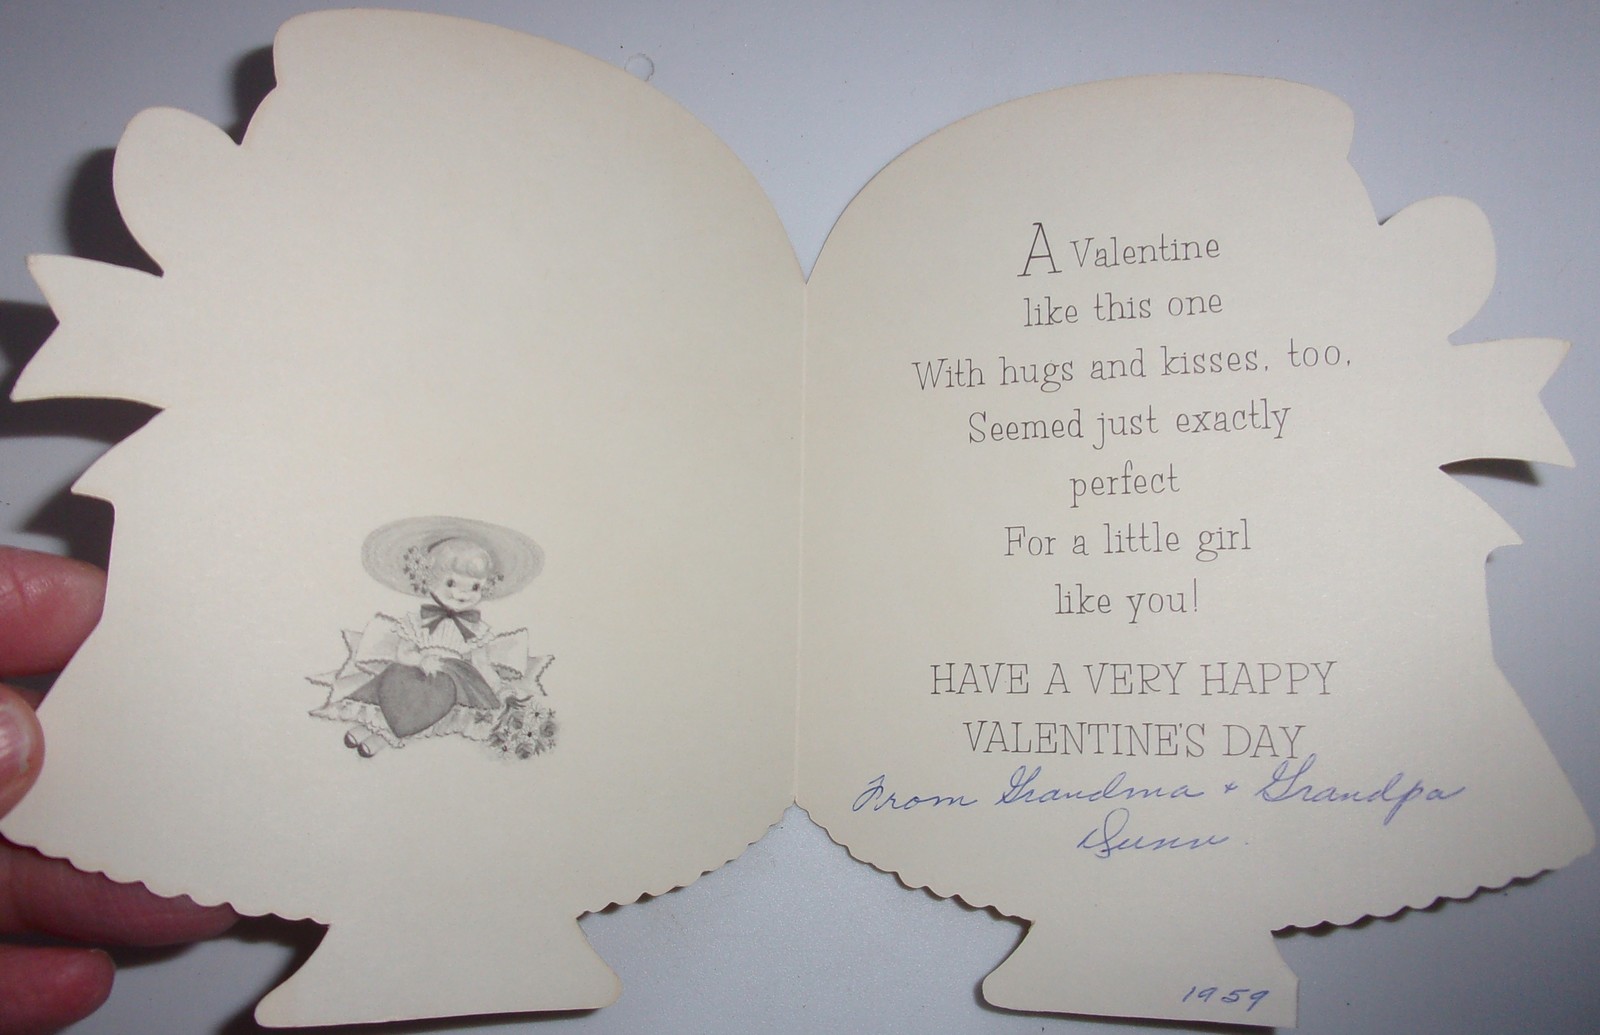 A Valentine
like this one
With hugs and kisses, too,
Seemed just exactly
perfect
For a little girl
like you!
HAVE A VERY HAPPY
VALENTINE'S DAY
From Grandma + Grandpa
Dunn.
1959